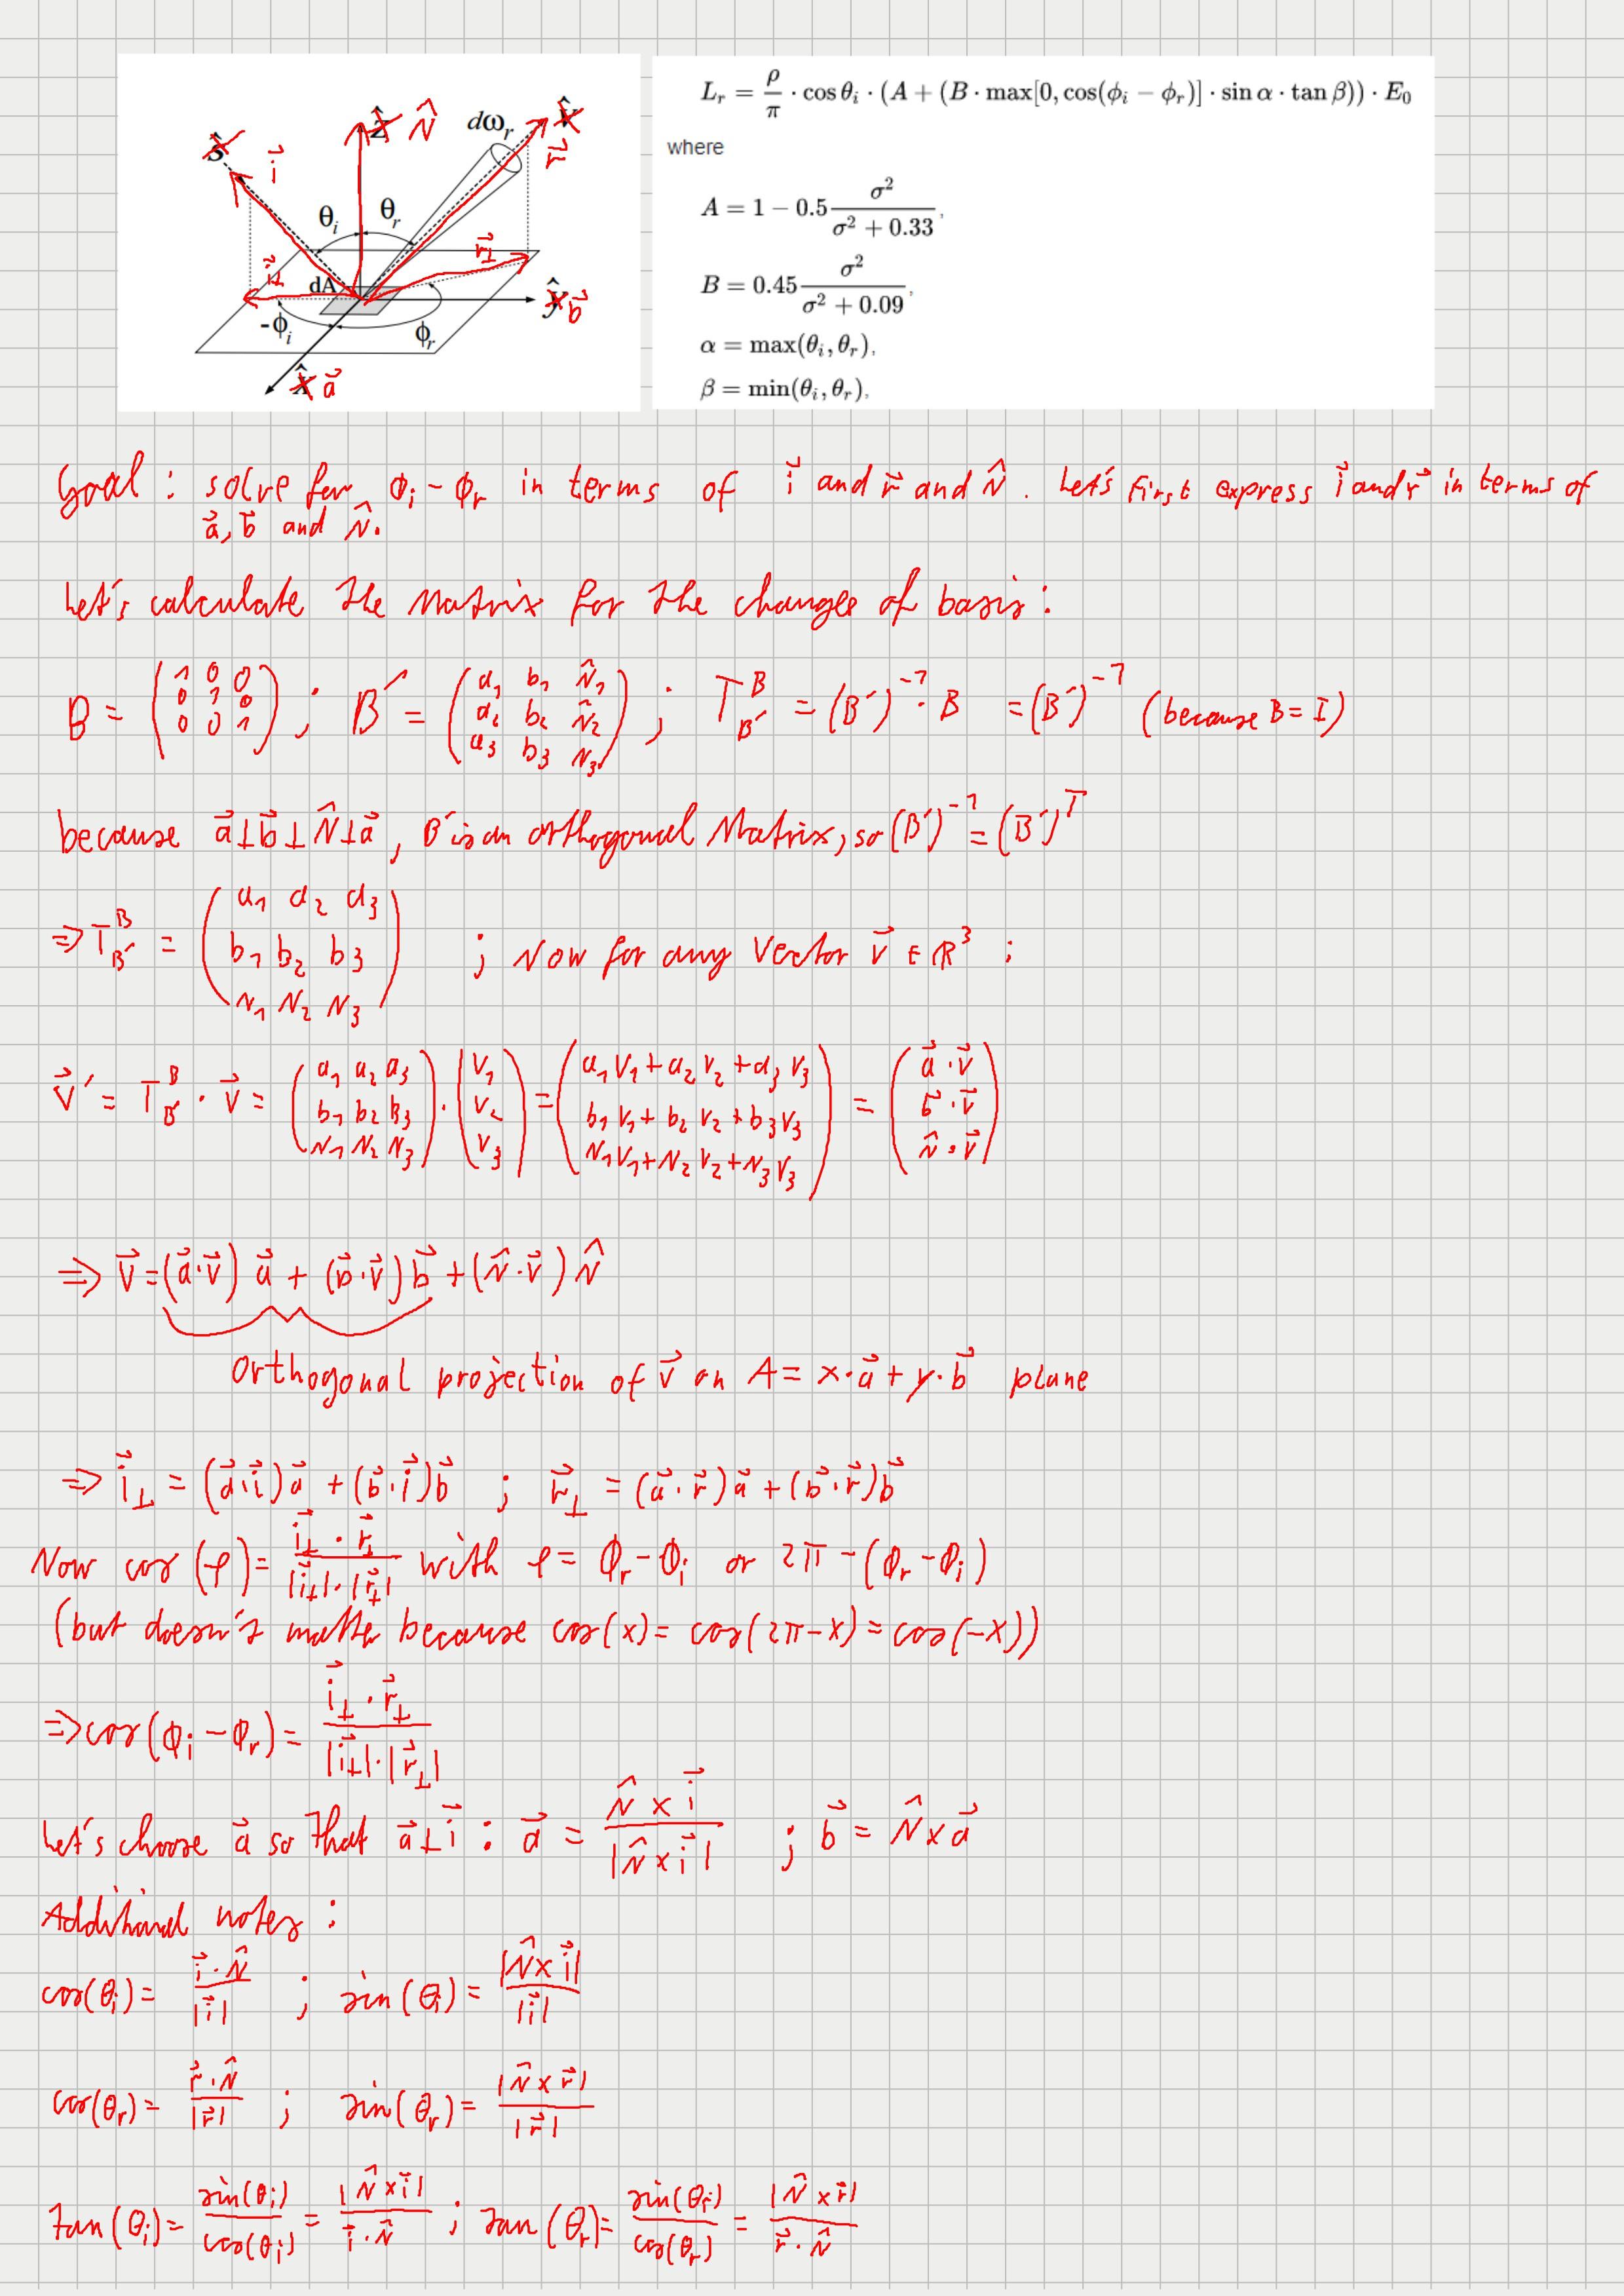 ŝ i⃗ ẑ N̂ dω_r v̂ r⃗
θ_i θ_r
i⃗_⊥ dA r⃗_⊥ ŷ b⃗
-ϕ_i ϕ_r
x̂ a⃗
L_r = ρ/π · cos θ_i · (A + (B · max[0, cos(ϕ_i − ϕ_r)] · sin α · tan β)) · E_0
where
A = 1 − 0.5 σ²/(σ² + 0.33),
B = 0.45 σ²/(σ² + 0.09),
α = max(θ_i, θ_r),
β = min(θ_i, θ_r),
Goal: solve for ϕ_i - ϕ_r in terms of i⃗ and r⃗ and N̂. Let's first express i⃗ and r⃗ in terms of
a⃗, b⃗ and N̂.
Let's calculate the Matrix for the changes of basis:
B = (1 0 0; 0 1 0; 0 0 1) ; B' = (a_1 b_1 N̂_1; a_2 b_2 N̂_2; a_3 b_3 N_3) ; T_B'^B = (B')^-1 · B = (B')^-1 (because B = I)
because a⃗⊥b⃗⊥N̂⊥a⃗, B' is an orthogonal Matrix, so (B')^-1 = (B')^T
⇒ T_B'^B = (a_1 a_2 a_3; b_1 b_2 b_3; N_1 N_2 N_3) ; Now for any Vector v⃗ ∈ ℝ³ ;
v⃗' = T_B'^B · v⃗ = (a_1 a_2 a_3; b_1 b_2 b_3; N_1 N_2 N_3) · (v_1; v_2; v_3) = (a_1 v_1 + a_2 v_2 + a_3 v_3; b_1 v_1 + b_2 v_2 + b_3 v_3; N_1 v_1 + N_2 v_2 + N_3 v_3) = (a⃗ · v⃗; b⃗ · v⃗; N̂ · v⃗)
⇒ v⃗ = (a⃗·v⃗) a⃗ + (b⃗·v⃗) b⃗ + (N̂·v⃗) N̂
Orthogonal projection of v⃗ on A = x·a⃗ + y·b⃗ plane
⇒ i⃗_⊥ = (a⃗·i⃗)a⃗ + (b⃗·i⃗)b⃗ ; r⃗_⊥ = (a⃗·r⃗)a⃗ + (b⃗·r⃗)b⃗
Now cos(φ) = i⃗_⊥ · r⃗_⊥ / |i⃗_⊥|·|r⃗_⊥| with φ = ϕ_r - ϕ_i or 2π - (ϕ_r - ϕ_i)
(but doesn't matter because cos(x) = cos(2π-x) = cos(-x))
⇒ cos(ϕ_i - ϕ_r) = i⃗_⊥ · r⃗_⊥ / |i⃗_⊥|·|r⃗_⊥|
Let's choose a⃗ so that a⃗⊥i⃗ : a⃗ = N̂ × i⃗ / |N̂ × i⃗| ; b⃗ = N̂ × a⃗
Additional notes :
cos(θ_i) = i⃗·N̂ / |i⃗| ; sin(θ_i) = |N̂ × i⃗| / |i⃗|
cos(θ_r) = r⃗·N̂ / |r⃗| ; sin(θ_r) = |N̂ × r⃗| / |r⃗|
tan(θ_i) = sin(θ_i) / cos(θ_i) = |N̂ × i⃗| / i⃗·N̂ ; tan(θ_r) = sin(θ_r) / cos(θ_r) = |N̂ × r⃗| / r⃗·N̂